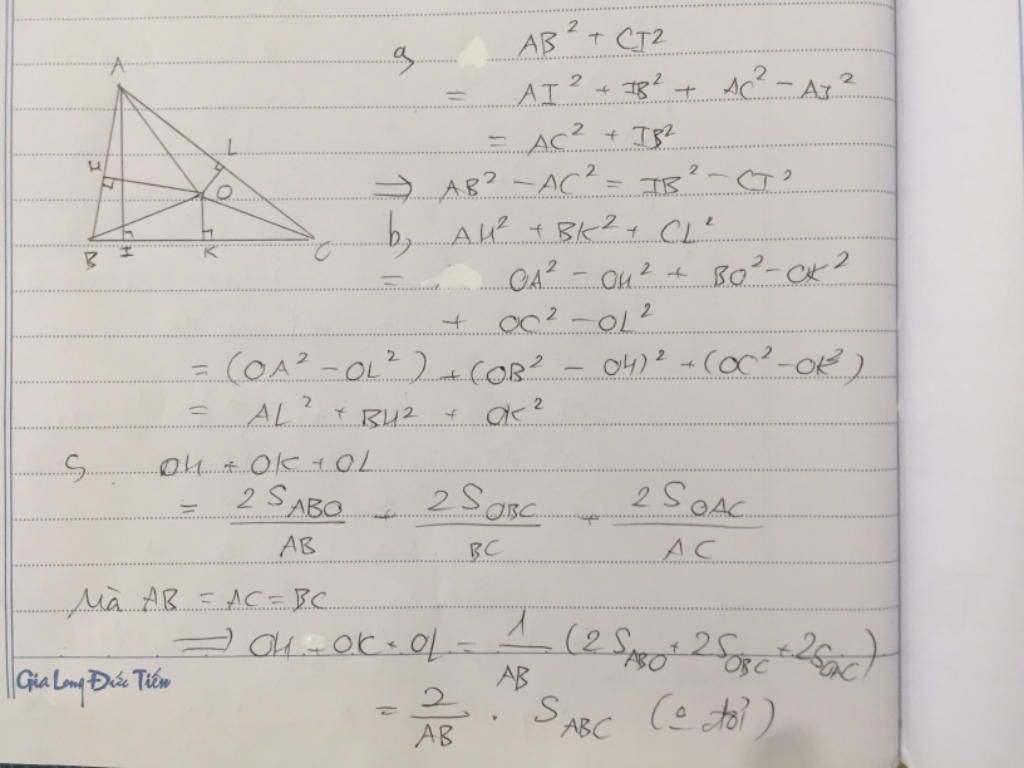 A
H
L
O
B
I
K
C
a, AB² + CI²
= AI² + IB² + AC² - AI²
= AC² + IB²
⇒ AB² - AC² = IB² - CI²
b, AH² + BK² + CL²
= OA² - OH² + BO² - OK²
+ OC² - OL²
= (OA² - OL²) + (OB² - OH)² + (OC² - OK²)
= AL² + BH² + OK²
c, OH + OK + OL
= 2 S_ABO / AB + 2 S_OBC / BC + 2 S_OAC / AC
Mà AB = AC = BC
⇒ OH + OK + OL = 1/AB (2 S_ABO + 2 S_OBC + 2 S_OAC)
= 2/AB . S_ABC (o đổi)
Gia Long Đức Tiến